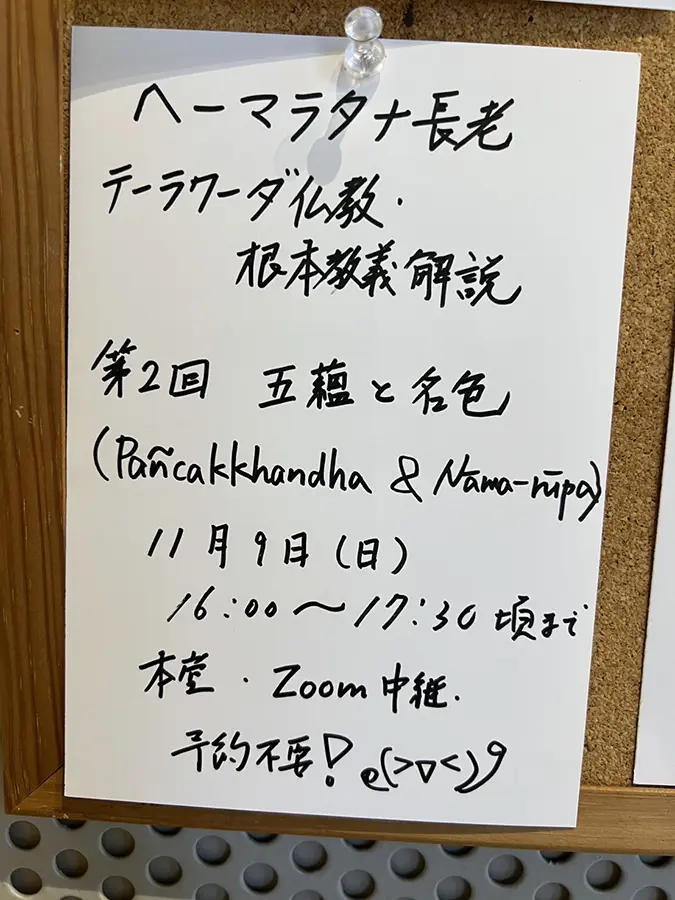 ヘーマラタナ長老
テーラワーダ仏教・
根本教義解説
第2回 五蘊と名色
(Pañcakkhandha & Nāma-rūpa)
11月9日(日)
16:00〜17:30頃まで
本堂・Zoom中継.
予約不要! e(>▽<)9